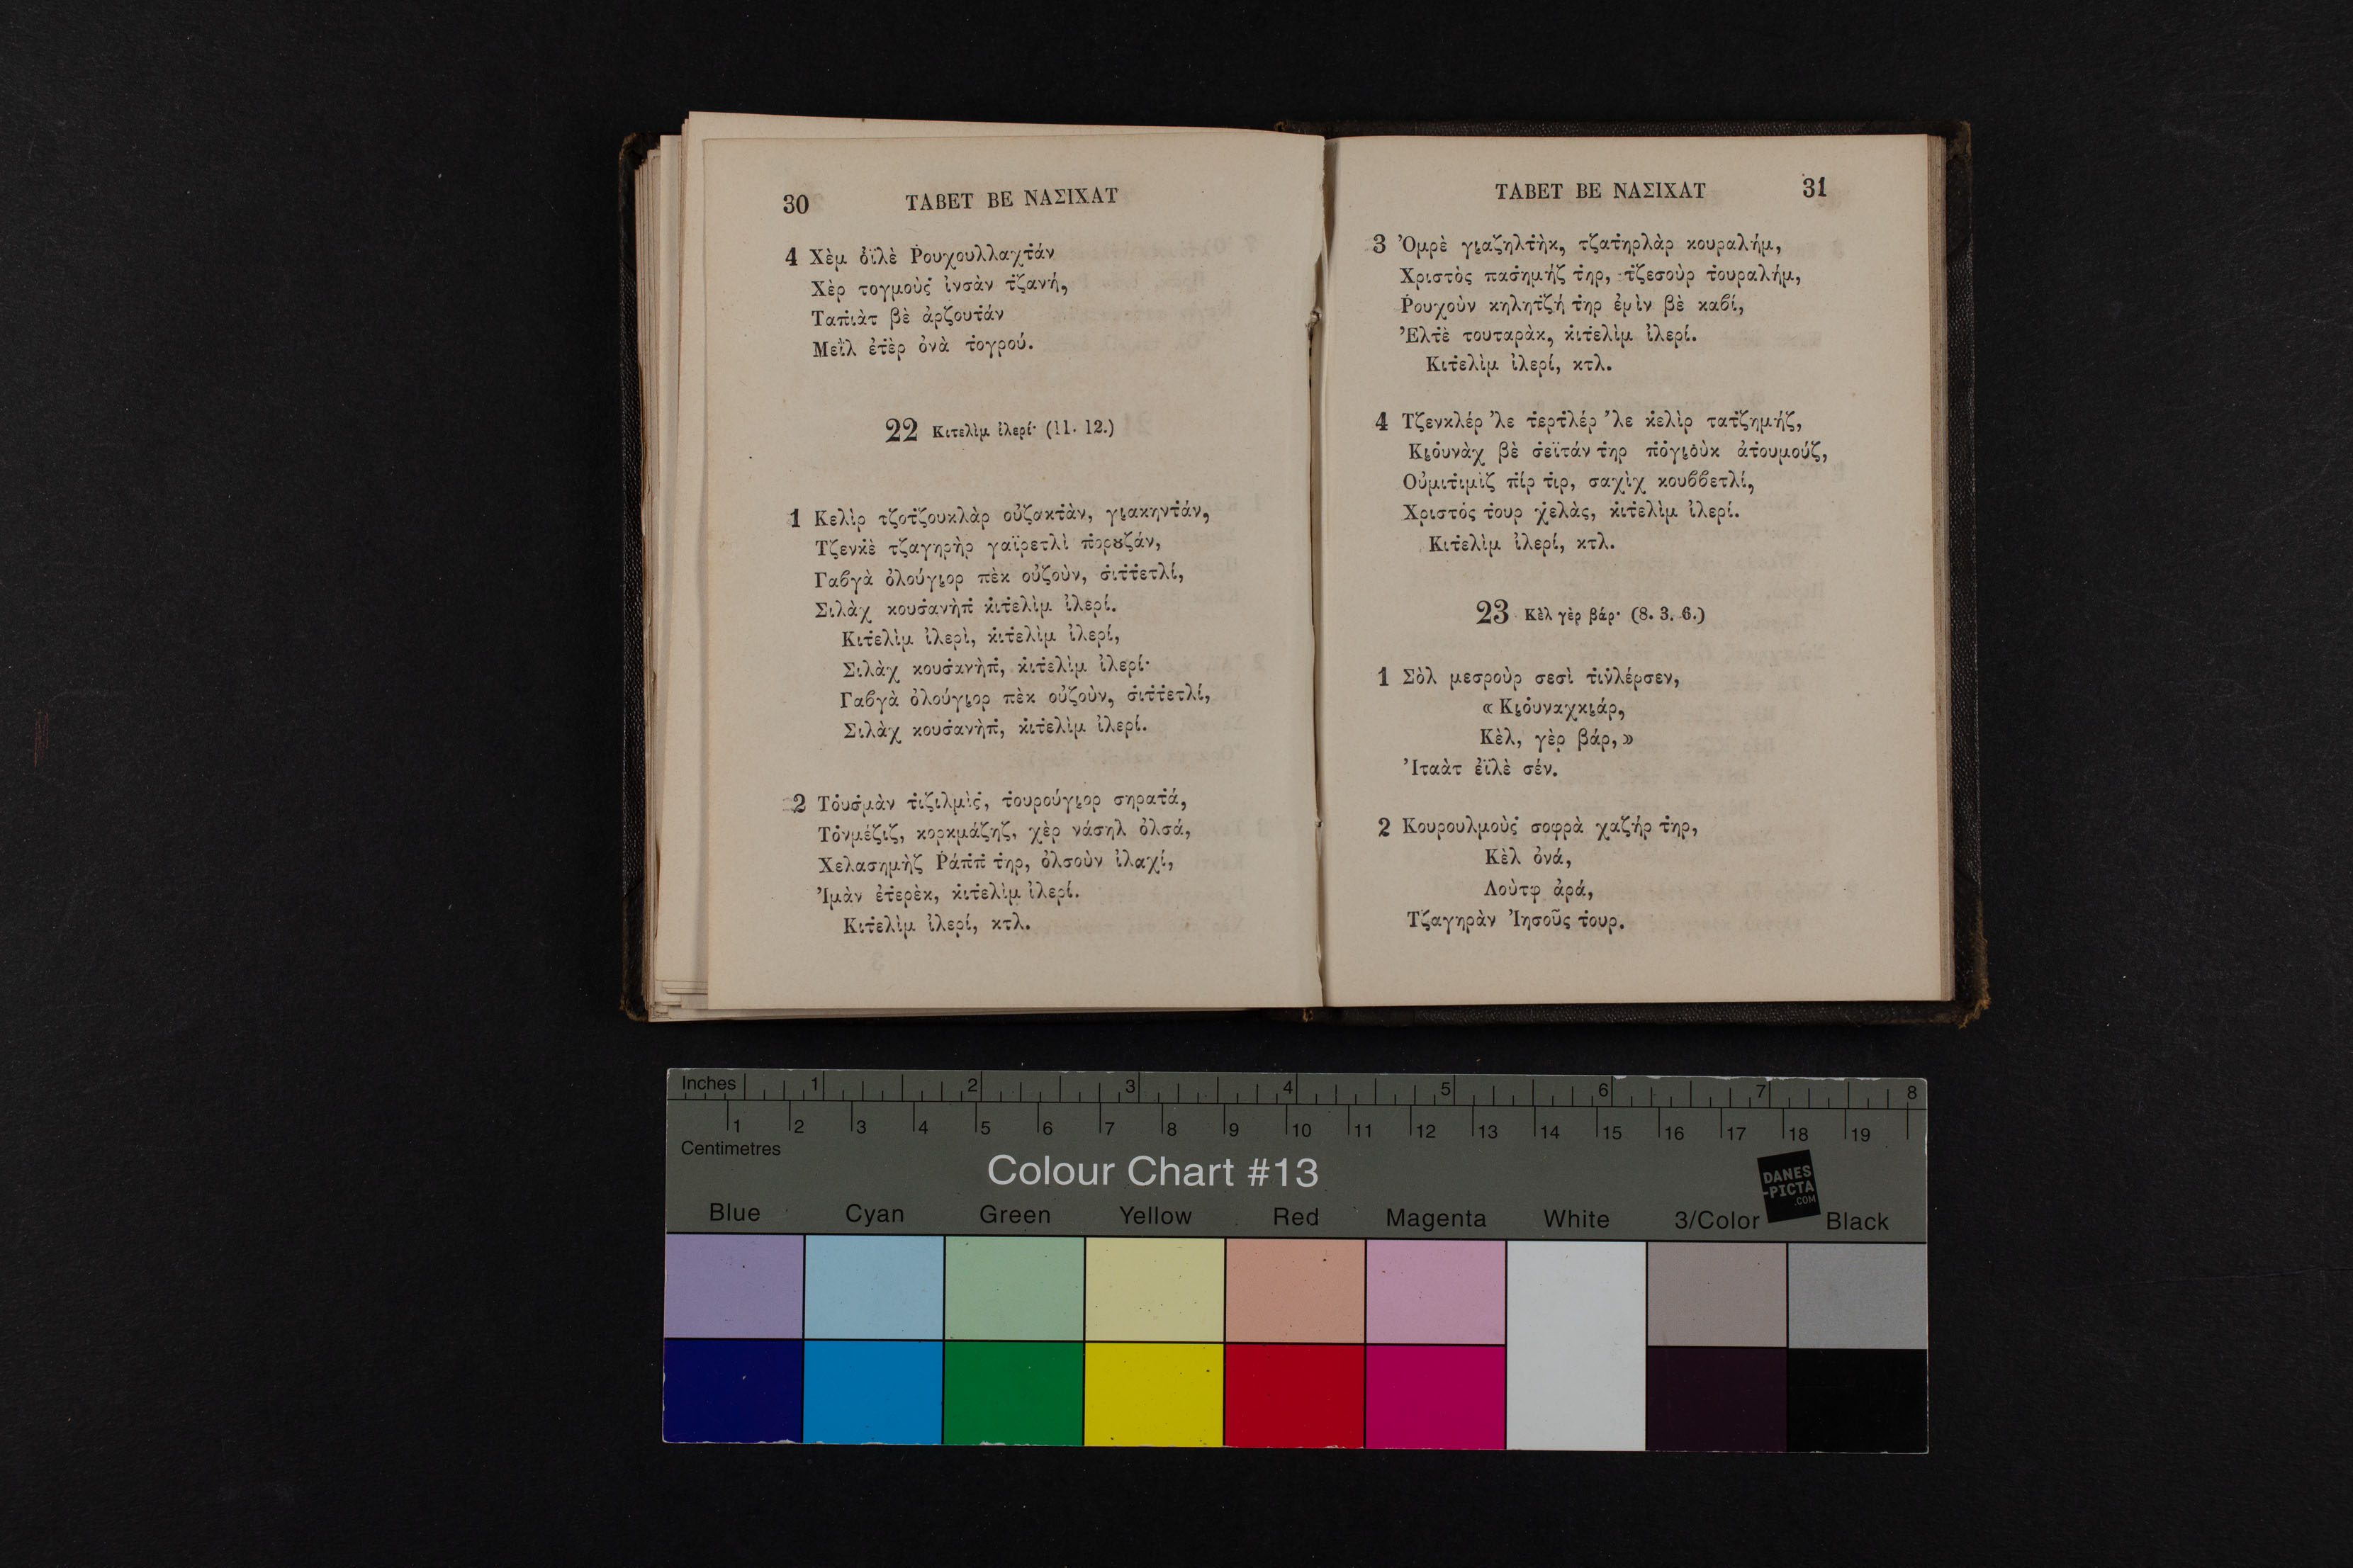 30 ΤΑΒΕΤ ΒΕ ΝΑΣΙΧΑΤ
4 Χὲμ ὀ̇ϊλὲ Ῥουχουλλαχτ̇άν
Χὲρ τογμοὺς̇ ἰνσὰν τ̇ζανή,
Ταπ̇ιὰτ βὲ ἀρζουτ̇άν
Μεῒλ ἐτ̇ὲρ ὀνὰ τ̇ογρού.
22 Κιτελὶμ ἰλερί· (11. 12.)
1 Κελὶρ τζοτ̇ζουκλὰρ οὐζακτ̇ὰν, γι̯ακηντ̇άν,
Τζενκ̇ὲ τζαγηρὴρ γαϊρετλὶ π̇ορȣζάν,
Γαβγὰ ὀλούγι̯ορ πὲκ οὐζοὺν, σ̇ιτ̇τ̇ετλί,
Σιλὰχ κουσ̇ανὴπ̇ κ̇ιτ̇ελὶμ ἰλερί.
Κιτ̇ελὶμ ἰλερὶ, κ̇ιτ̇ελὶμ ἰλερί,
Σιλὰχ κουσ̇ανὴπ̇, κ̇ιτ̇ελὶμ ἰλερί·
Γαβγὰ ὀλούγι̯ορ πὲκ οὐζοὺν, σ̇ιτ̇τ̇ετλί,
Σιλὰχ κουσ̇ανὴπ̇, κ̇ιτ̇ελὶμ ἰλερί.
2 Τοὐσ̇μὰν τ̇ιζιλμὶς̇, τ̇ουρούγι̯ορ σηρατ̇ά,
Τὀνμέζιζ, κορκμάζηζ, χὲρ νάσηλ ὀλσά,
Χελασημὴζ Ῥάπ̇π̇ τ̇ηρ, ὀλσοὺν ἰλαχί,
Ἰμὰν ἐτ̇ερὲκ, κ̇ιτ̇ελὶμ ἰλερί.
Κιτ̇ελὶμ ἰλερί, κτλ.
ΤΑΒΕΤ ΒΕ ΝΑΣΙΧΑΤ 31
3 Ὀμρὲ γι̯αζηλτ̇ὴκ, τζατ̇ηρλὰρ κουραλήμ,
Χριστὸς πασ̇ημήζ τ̇ηρ, τ̇ζεσοὺρ τ̇ουραλήμ,
Ῥουχοὺν κηλητ̇ζή τ̇ηρ ἐμὶν βὲ καβί,
Ἐλτ̇ὲ τουταρὰκ, κ̇ιτ̇ελὶμ ἰλερί.
Κιτ̇ελὶμ ἰλερί, κτλ.
4 Τζενκλέρ 'λε τ̇ερτ̇λέρ 'λε κ̇ελὶρ τατ̇ζημήζ,
Κι̯ὀυνὰχ βὲ σ̇εϊτάν τ̇ηρ π̇ὀγι̯ὀὺκ ἀτ̇ουμούζ,
Οὐμιτ̇ιμὶζ π̇ίρ τ̇ιρ, σαχὶχ κουββετλί,
Χριστὸς τ̇ουρ χελὰς, κ̇ιτ̇ελὶμ ἰλερί.
Κιτ̇ελὶμ ἰλερί, κτλ.
23 Κὲλ γὲρ βάρ· (8. 3. 6.)
1 Σὸλ μεσροὺρ σεσὶ τ̇ιν̇λέρσεν,
« Κι̯ὀυναχκι̯άρ,
Κὲλ, γὲρ βάρ, »
Ἰταὰτ ἐϊλὲ σέν.
2 Κουρουλμοὺς̇ σοφρὰ χαζήρ τ̇ηρ,
Κὲλ ὀνά,
Λοὺτφ ἀρά,
Τζαγηρὰν Ἰησοῦς τ̇ουρ.
Inches 1 2 3 4 5 6 7 8
1 2 3 4 5 6 7 8 9 10 11 12 13 14 15 16 17 18 19
Centimetres
Colour Chart #13
DANES
-PICTA
.COM
Blue Cyan Green Yellow Red Magenta White 3/Color Black